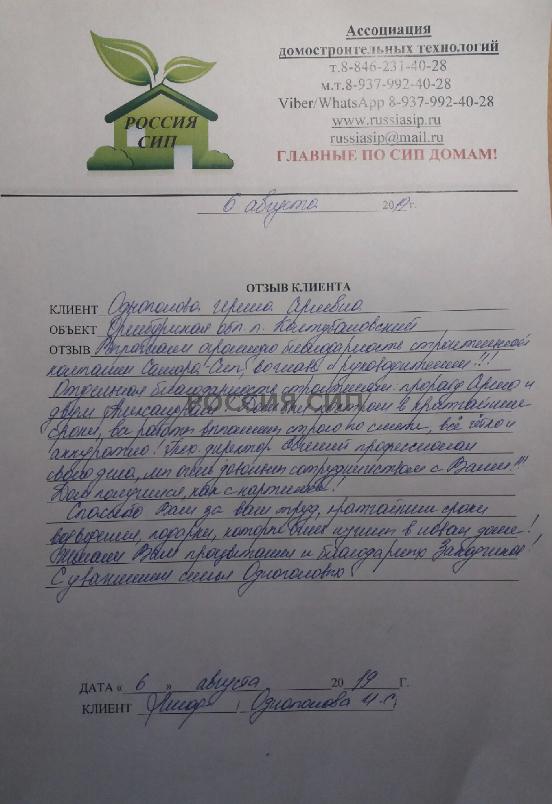 Ассоциация
домостроительных технологий
т.8-846-231-40-28
м.т.8-937-992-40-28
Viber/WhatsApp 8-937-992-40-28
www.russiasip.ru
russiasip@mail.ru
ГЛАВНЫЕ ПО СИП ДОМАМ!
РОССИЯ
СИП
6 августа 2019г.
ОТЗЫВ КЛИЕНТА
КЛИЕНТ Однополова Ирина
ОБЪЕКТ Оренбургская обл п. Колтубановский
ОТЗЫВ Выражаем огромную благодарность строительной
компании Самара-Сип, во главе с руководителем!!!
Отдельная благодарность строителям прорабу и
двум в кратчайшие
РОССИЯ СИП
сроки, все работы выполнены строго по смете, всё чётко и
аккуратно! директор профессионал
своего дела, мы очень довольны сотрудничеством с Вами!!!
Дом получился, как с картинки!
Спасибо Вам за ваш труд, кратчайшие сроки
возведения, подарки, которые в новом доме!
Желаем Вам процветания и
С уважением семья
ДАТА « 6 » августа 20 19 г.
КЛИЕНТ / Однополова И.С.